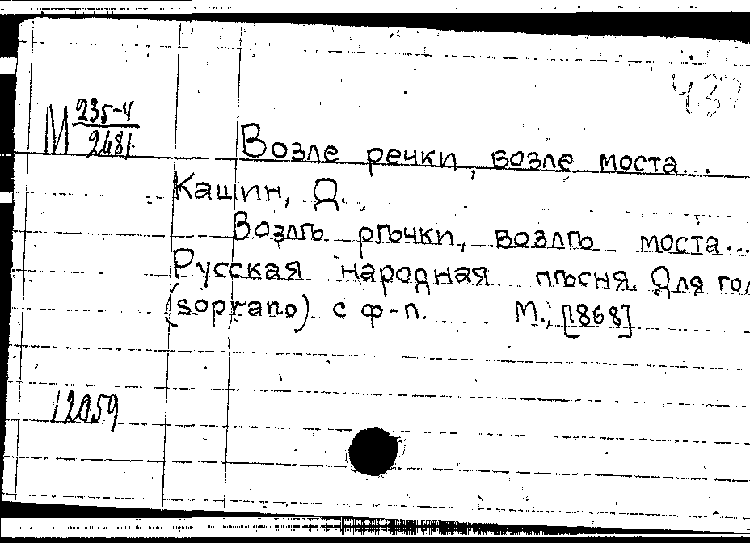 437
М 235-4
2481
Возле речки, возле моста...
Кашин, Д.
Возлѣ рѣчки, возлѣ моста...
Русская народная пѣсня. Для гол
(soprano) с ф-п. М., [1868]
12059